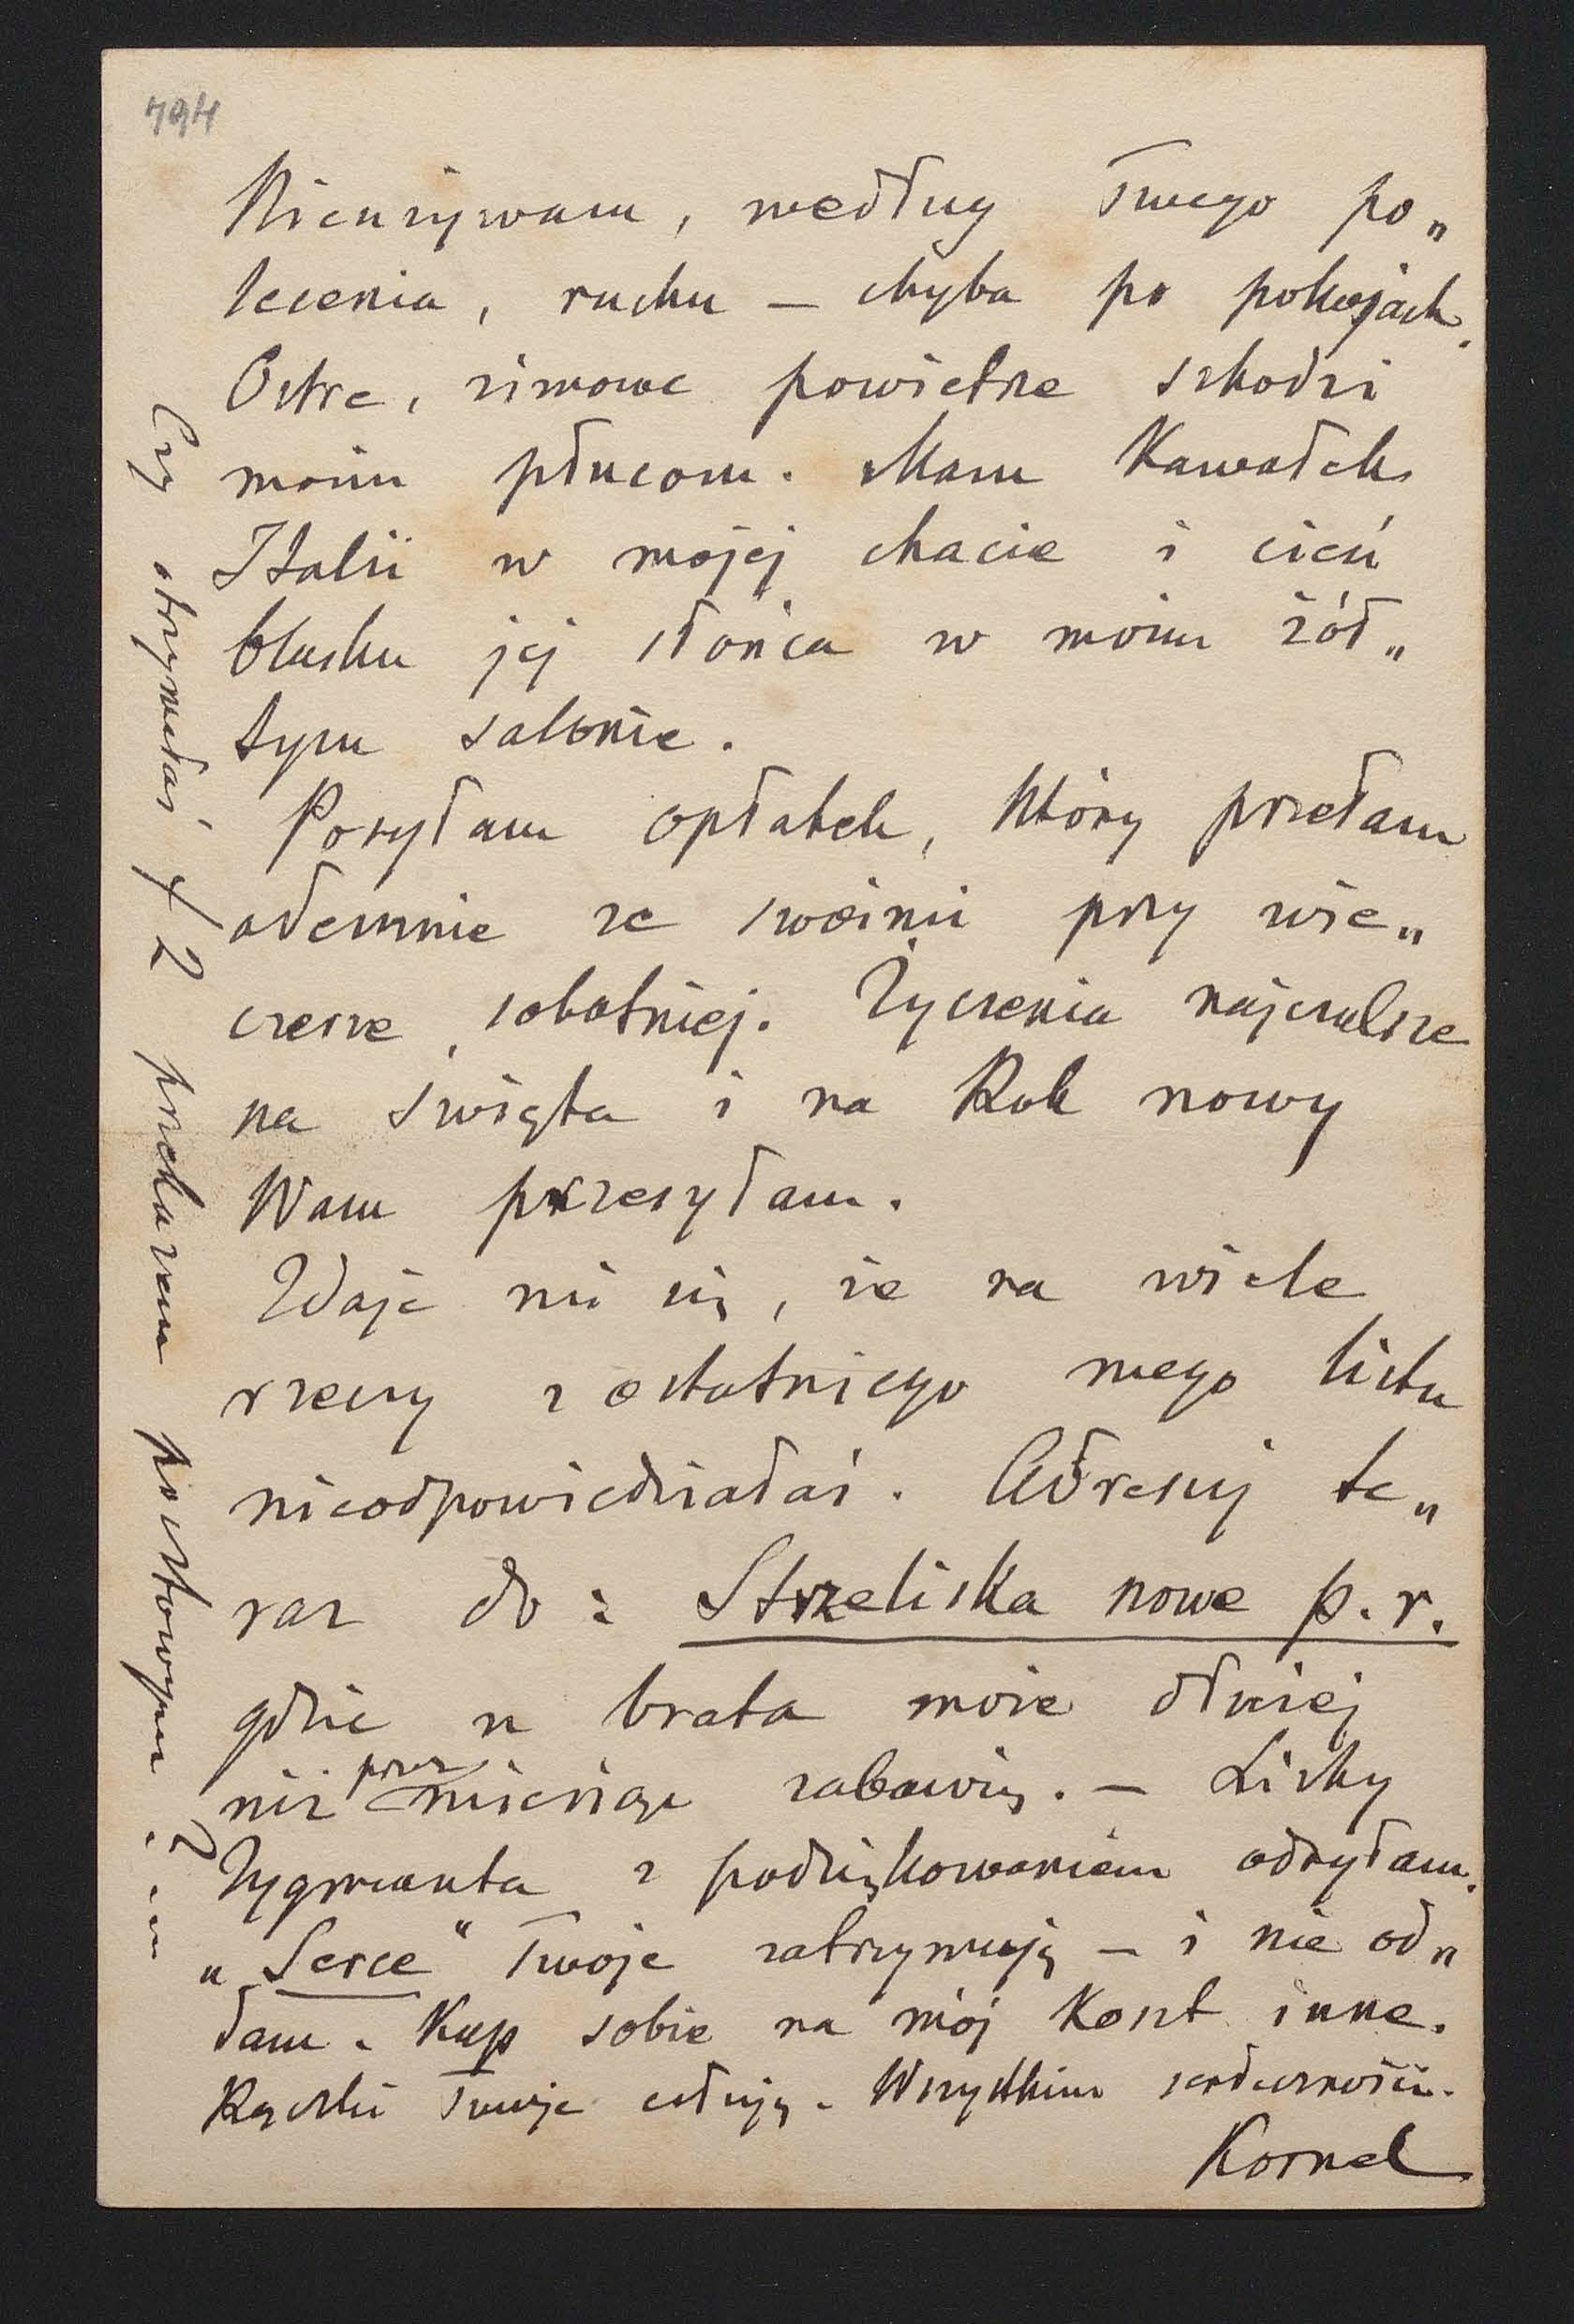 794
Nieużywam, według Twego po„
lecenia, ruchu — chyba po pokojach.
Ostre, zimowe powietrze szkodzi
moim płucom. Mam Kawałek
Italii w mojej chacie i cień
blasku jej słońca w moim żół„
tym salonie.
Posyłam opłatek, który przełam
odemnie ze swoimi przy wie„
czerze sobotniej. Życzenia najczulsze
na święta i na Rok nowy
Wam przesyłam.
Zdaje mi się, że na wiele
rzeczy z ostatniego mego listu
nieodpowiedziałaś. Adresuj te„
raz do: Strzeliska nowe p. r.
gdzie u brata może dłużej
niż przez miesiąc zabawię. — Listy
Zygmunta z podziękowaniem odsyłam.
„Serce" Twoje zatrzymuję — i nie od„
dam. Kup sobie na mój Koszt inne.
Rączki Twoje całuję. Wszystkim serdeczności.
Kornel
Czy otrzymałaś f 2 przekazem pocztowym?